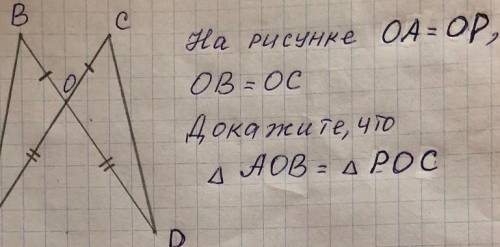 B
C
O
На рисунке OA = OP,
OB = OC
Докажите, что
△ AOB = △ POC